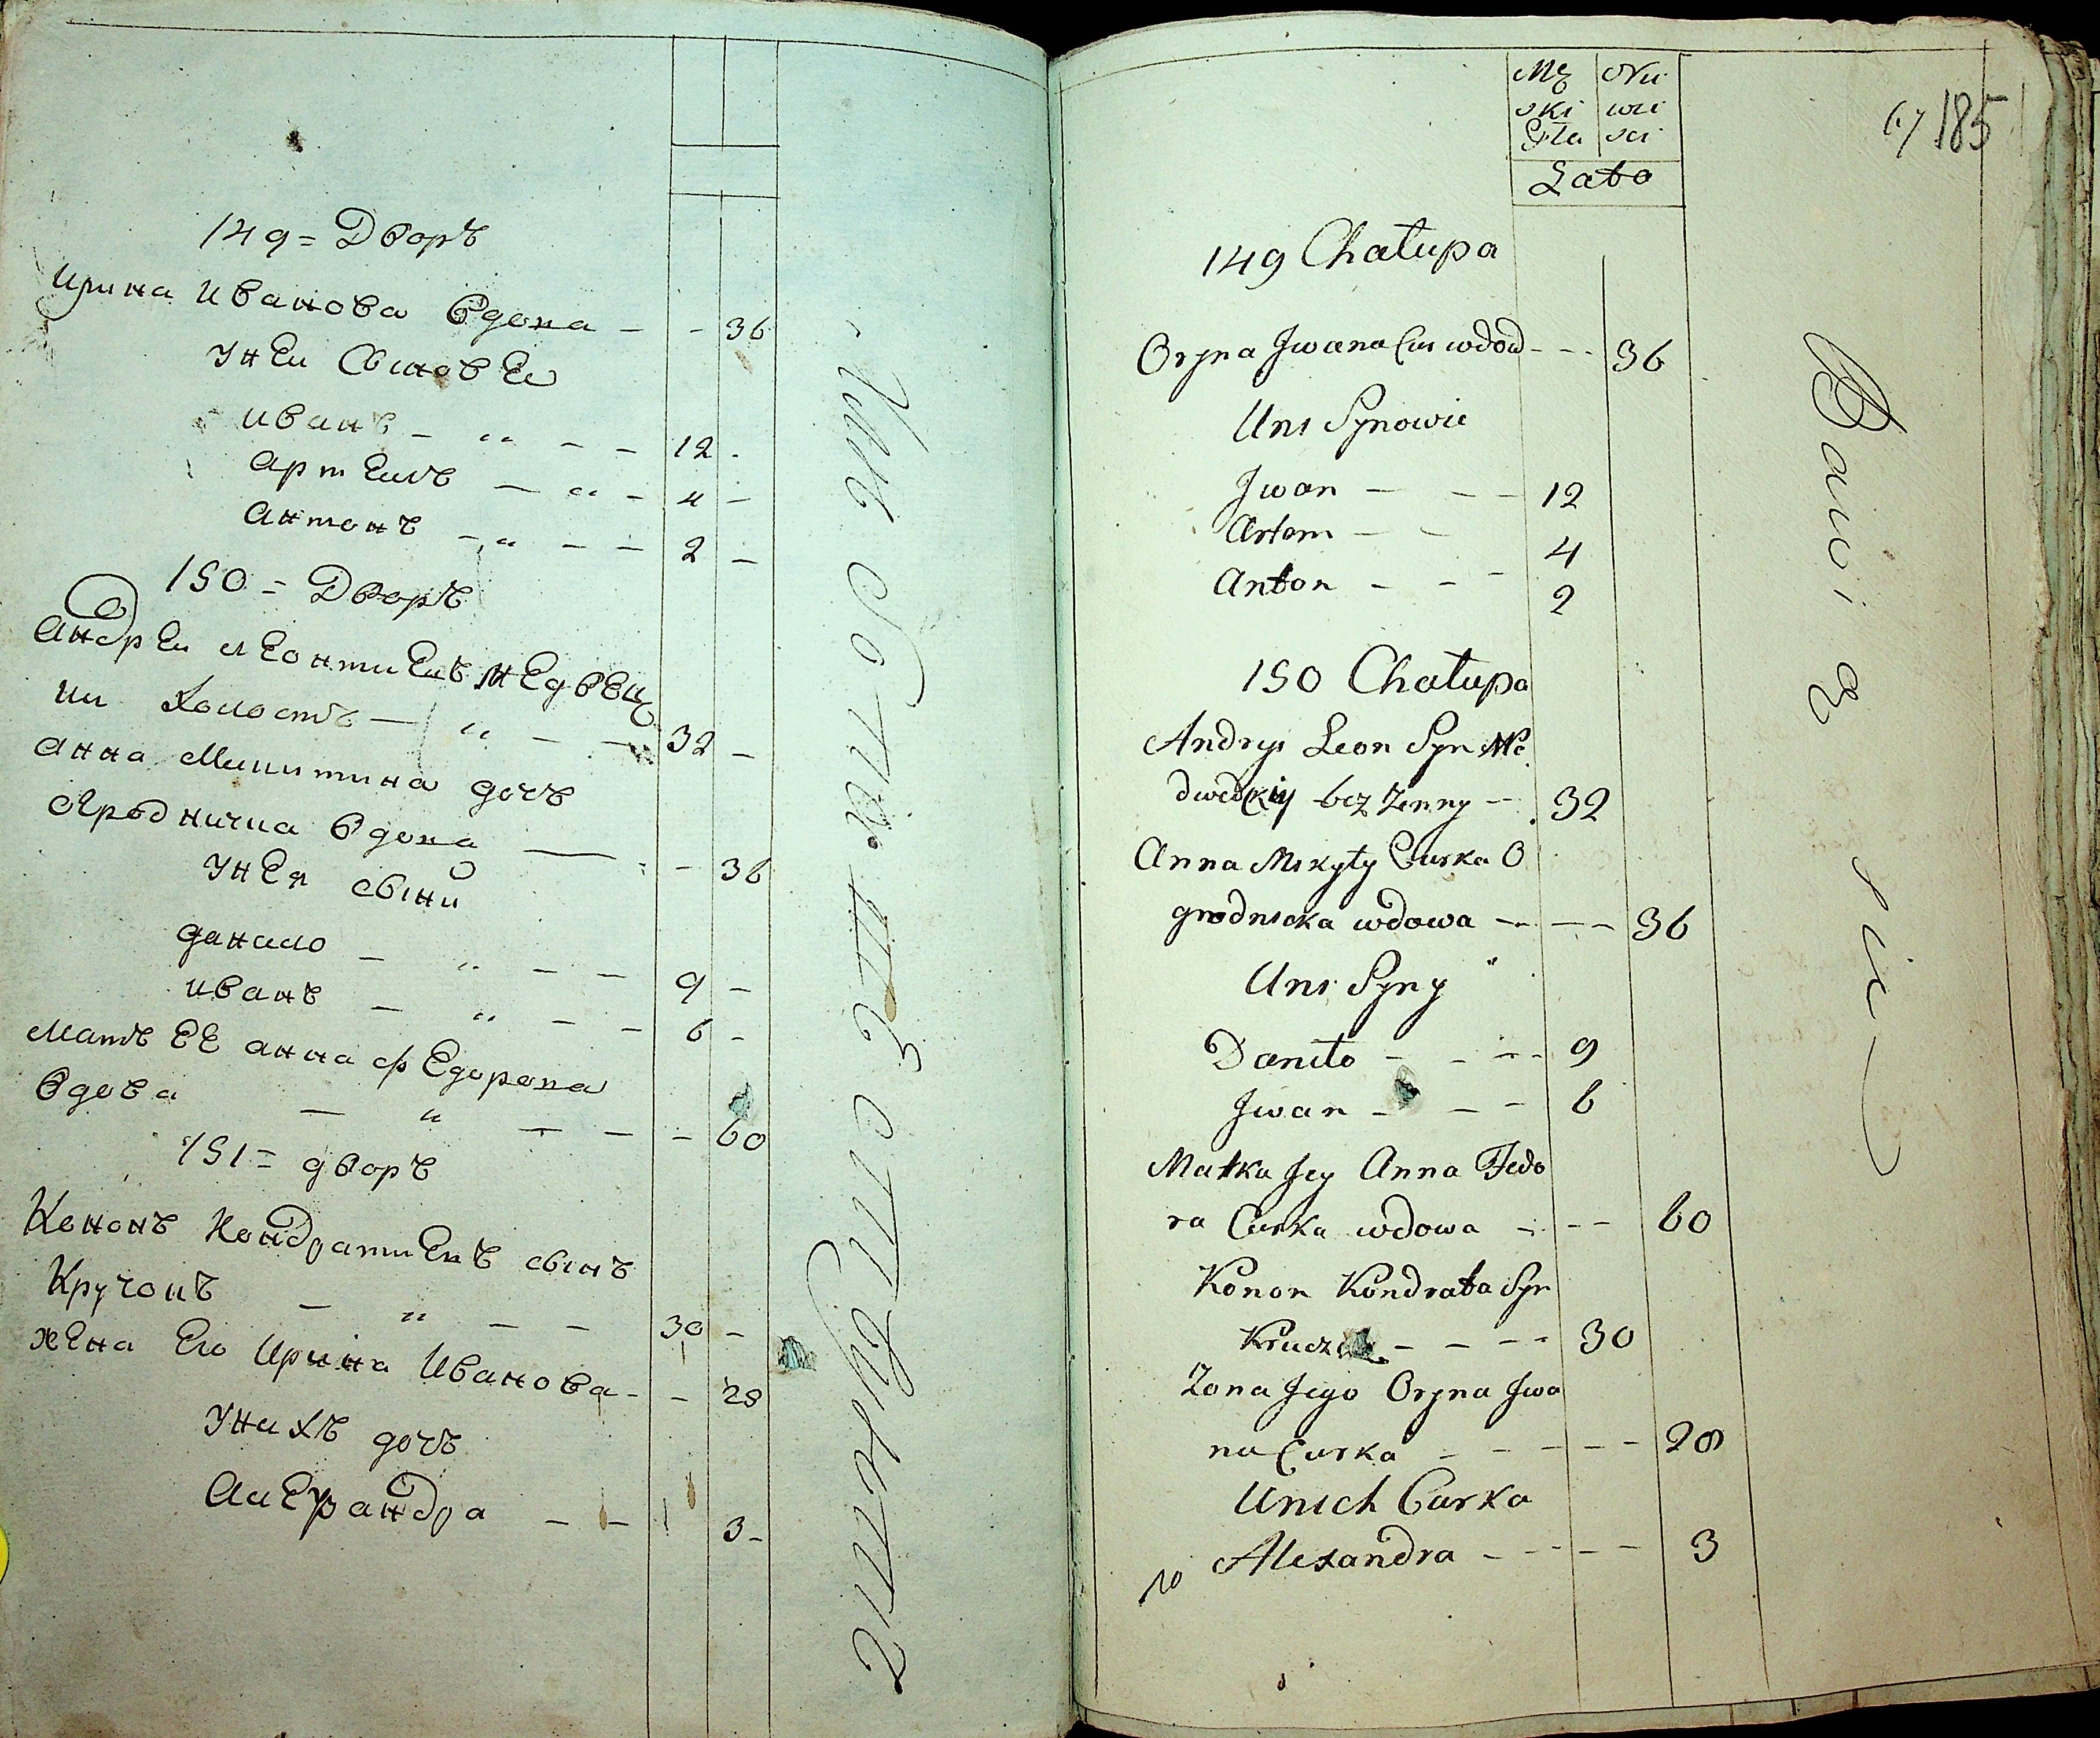 149 = Дворъ
Ирина Иванова вдова - - 36
У неи сыновеи
Иванъ - " - - 12 -
Артемъ - " - 4 -
Антонъ - " - - 2 -
150 = Дворъ
Андреи Леонтиевъ Недвец
ки холостъ - " - - 32 -
Анна Микитина дочъ
Огродничка вдова - - 36
У нея сыны
Данило - " - - 9 -
Иванъ - " - - 6 -
Матъ ее Анна Федорова
вдова - " - - - 60
151 = дворъ
Кононъ Кондратиевъ сынъ
Кручокъ - " - - 30 -
жена Его Ирина Иванова - - 28
У нихъ дочъ
Алеxандра - - 3 -
Mę Nie
ski wie
Pła sci
Lato
67 185
149 Chałupa
Oryna Jwana Cur wdow - - - 36
Uni Synowie
Jwan - - - 12
Artem - - 4
Anton - - - 2
150 Chałupa
Andryi Leon Syn Ne
dwedkiy bez zenny - 32
Anna Mikyty Curka O
grodnicka wdowa - - - 36
Uni Syny
Daniło - - - - 9
Jwan - - - 6
Matka Jey Anna Fedo
ra Curka wdowa - - - 60
Konon Kondrata Syn
- - - - 30
Zona Jego Oryna Jwa
na Curka - - - - - 28
Unich Curka
Alexandra - - - - - 3